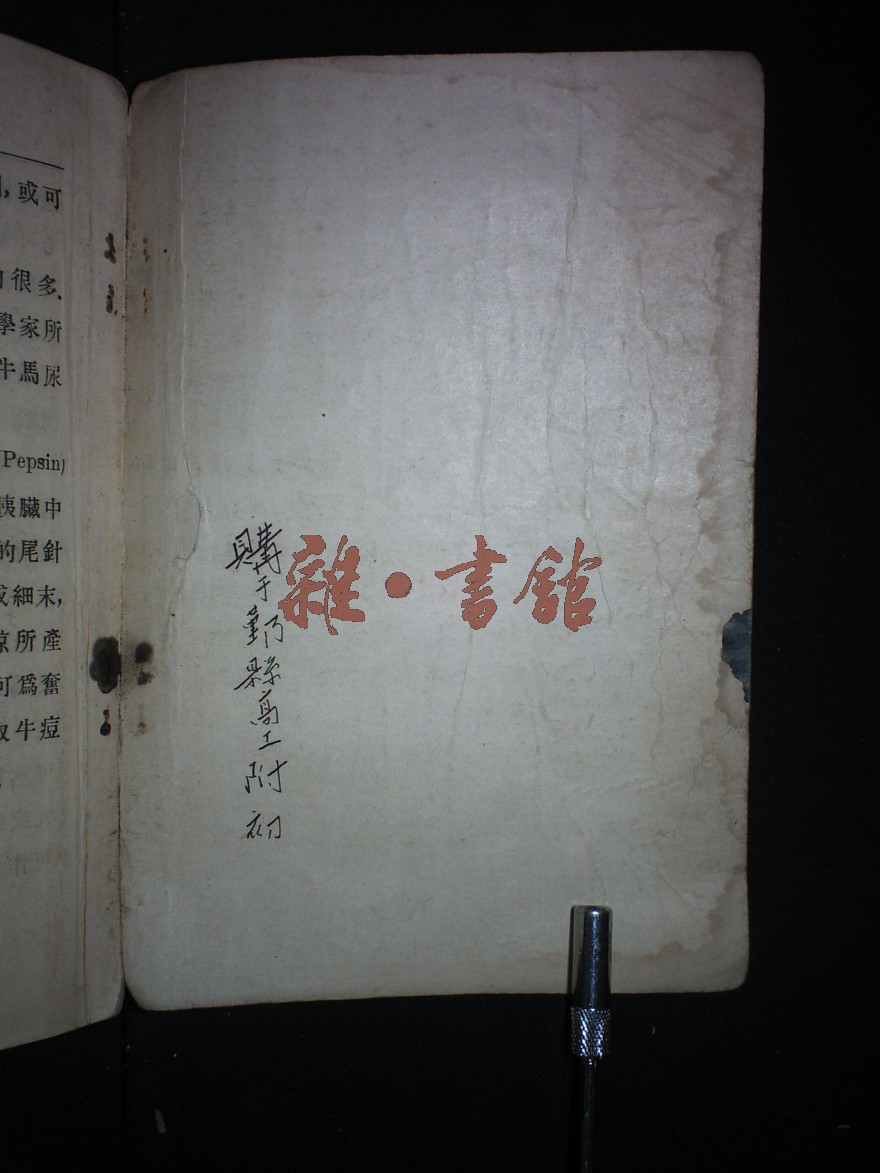 ,或可
很多.
學家所
牛馬尿
(Pepsin)
胰臟中
的尾針
成細末,
所產
可爲奮
取牛痘
購于鄞縣高工附初
雜·書館